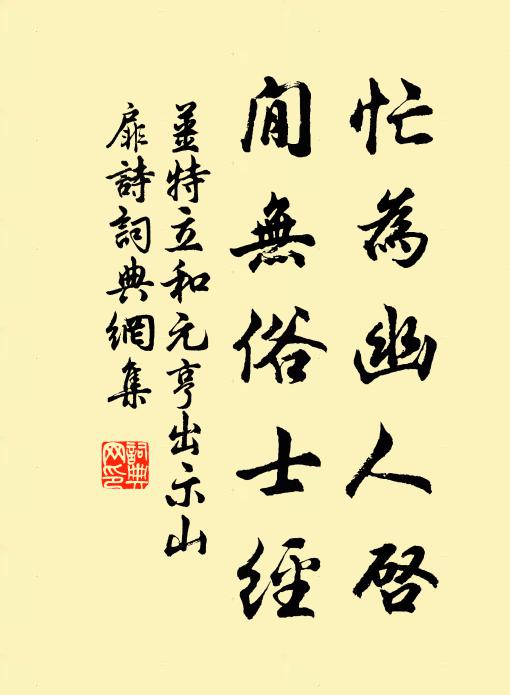 忙為幽人啓
閒無俗士經
姜特立和元亨出示山
扉詩詞典網集
詞典
网印